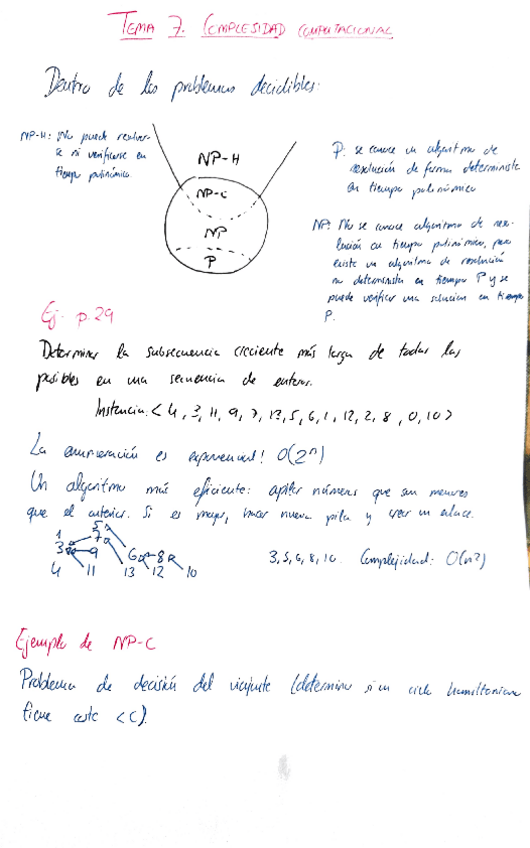 TEMA 7. COMPLESIDAD COMPUTACIONAL
Dentro de los problemas decidibles:
NP-H: No puede resolver-
se ni verificarse en
tiempo polinómico
NP-H
NP-C
NP
P
P: se conoce un algoritmo de
resolución de forma determinista
en tiempo polinómico
NP: No se conoce algoritmo de reso-
lución en tiempo polinómico, pero
existe un algoritmo de resolución
no determinista en tiempo P y se
puede verificar una solución en tiempo
P.
Ej. p.29
Determinar la subsecuencia creciente más larga de todas las
posibles en una secuencia de enteros.
Instancia: < 4, 3, 11, 9, 7, 13, 5, 6, 1, 12, 2, 8, 0, 10 >
La enumeración es exponencial! O(2^n)
Un algoritmo más eficiente: apilar números que son menores
que el anterior. Si es mayor, hacer nueva pila y crear un enlace.
1 5
3 7
9 6 8
4 11 13 12 10
3, 5, 6, 8, 10. Complejidad: O(n²)
Ejemplo de NP-C
Problema de decisión del viajante (determinar si un ciclo hamiltoniano
tiene coste < C).